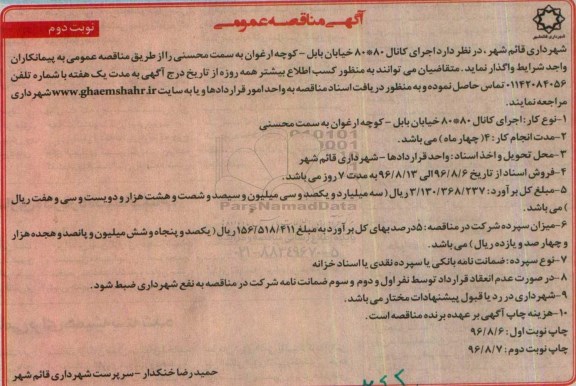 آگهی مناقصه عمومی
نوبت دوم
شهرداری قائم شهر ، در نظر دارد اجرای کانال 80*80 خیابان بابل - کوچه ارغوان به سمت محسنی را از طریق مناقصه عمومی به پیمانکاران
واجد شرایط واگذار نماید . متقاضیان می توانند به منظور کسب اطلاع بیشتر همه روزه از تاریخ درج آگهی به مدت یک هفته با شماره تلفن
01142084056 تماس حاصل نموده و به منظور دریافت اسناد مناقصه به واحد امور قراردادها و یا به سایت www.ghaemshahr.ir شهرداری
مراجعه نمایند.
1-نوع کار : اجرای کانال 80*80 خیابان بابل - کوچه ارغوان به سمت محسنی
2-مدت انجام کار : 4( چهار ماه) می باشد.
3-محل تحویل و اخذ اسناد : واحد قراردادها - شهرداری قائم شهر
4-فروش اسناد از تاریخ 96/8/6 الی 96/8/13 به مدت 7 روز می باشد.
5-مبلغ کل برآورد : 3/130/368/237 ریال ( سه میلیارد و یکصد و سی میلیون و سیصد و شصت و هشت هزار و دویست و سی و هفت ریال
) می باشد.
6-میزان سپرده شرکت در مناقصه : 5درصد بهای کل برآورد به مبلغ 156/518/411 ریال ( یکصد و پنجاه و شش میلیون و پانصد و هجده هزار
و چهار صد و یازده ریال ) می باشد.
7-نوع سپرده : ضمانت نامه بانکی یا سپرده نقدی یا اسناد خزانه
8-در صورت عدم انعقاد قرارداد توسط نفر اول و دوم و سوم ضمانت نامه شرکت در مناقصه به نفع شهرداری ضبط شود.
9-شهرداری در رد یا قبول پیشنهادات مختار می باشد.
10-هزینه چاپ آگهی بر عهده برنده مناقصه است.
چاپ نوبت اول : 96/8/6
چاپ نوبت دوم : 96/8/7
حمیدرضا خنکدار - سرپرست شهرداری قائم شهر
ParsNamadData